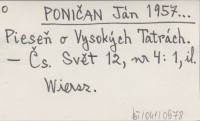 o
PONIČAN Ján 1957...
Pieseň o Vysokých Tatrách.
— Čs. Svět 12, nr 4: 1, il.
Wiersz.